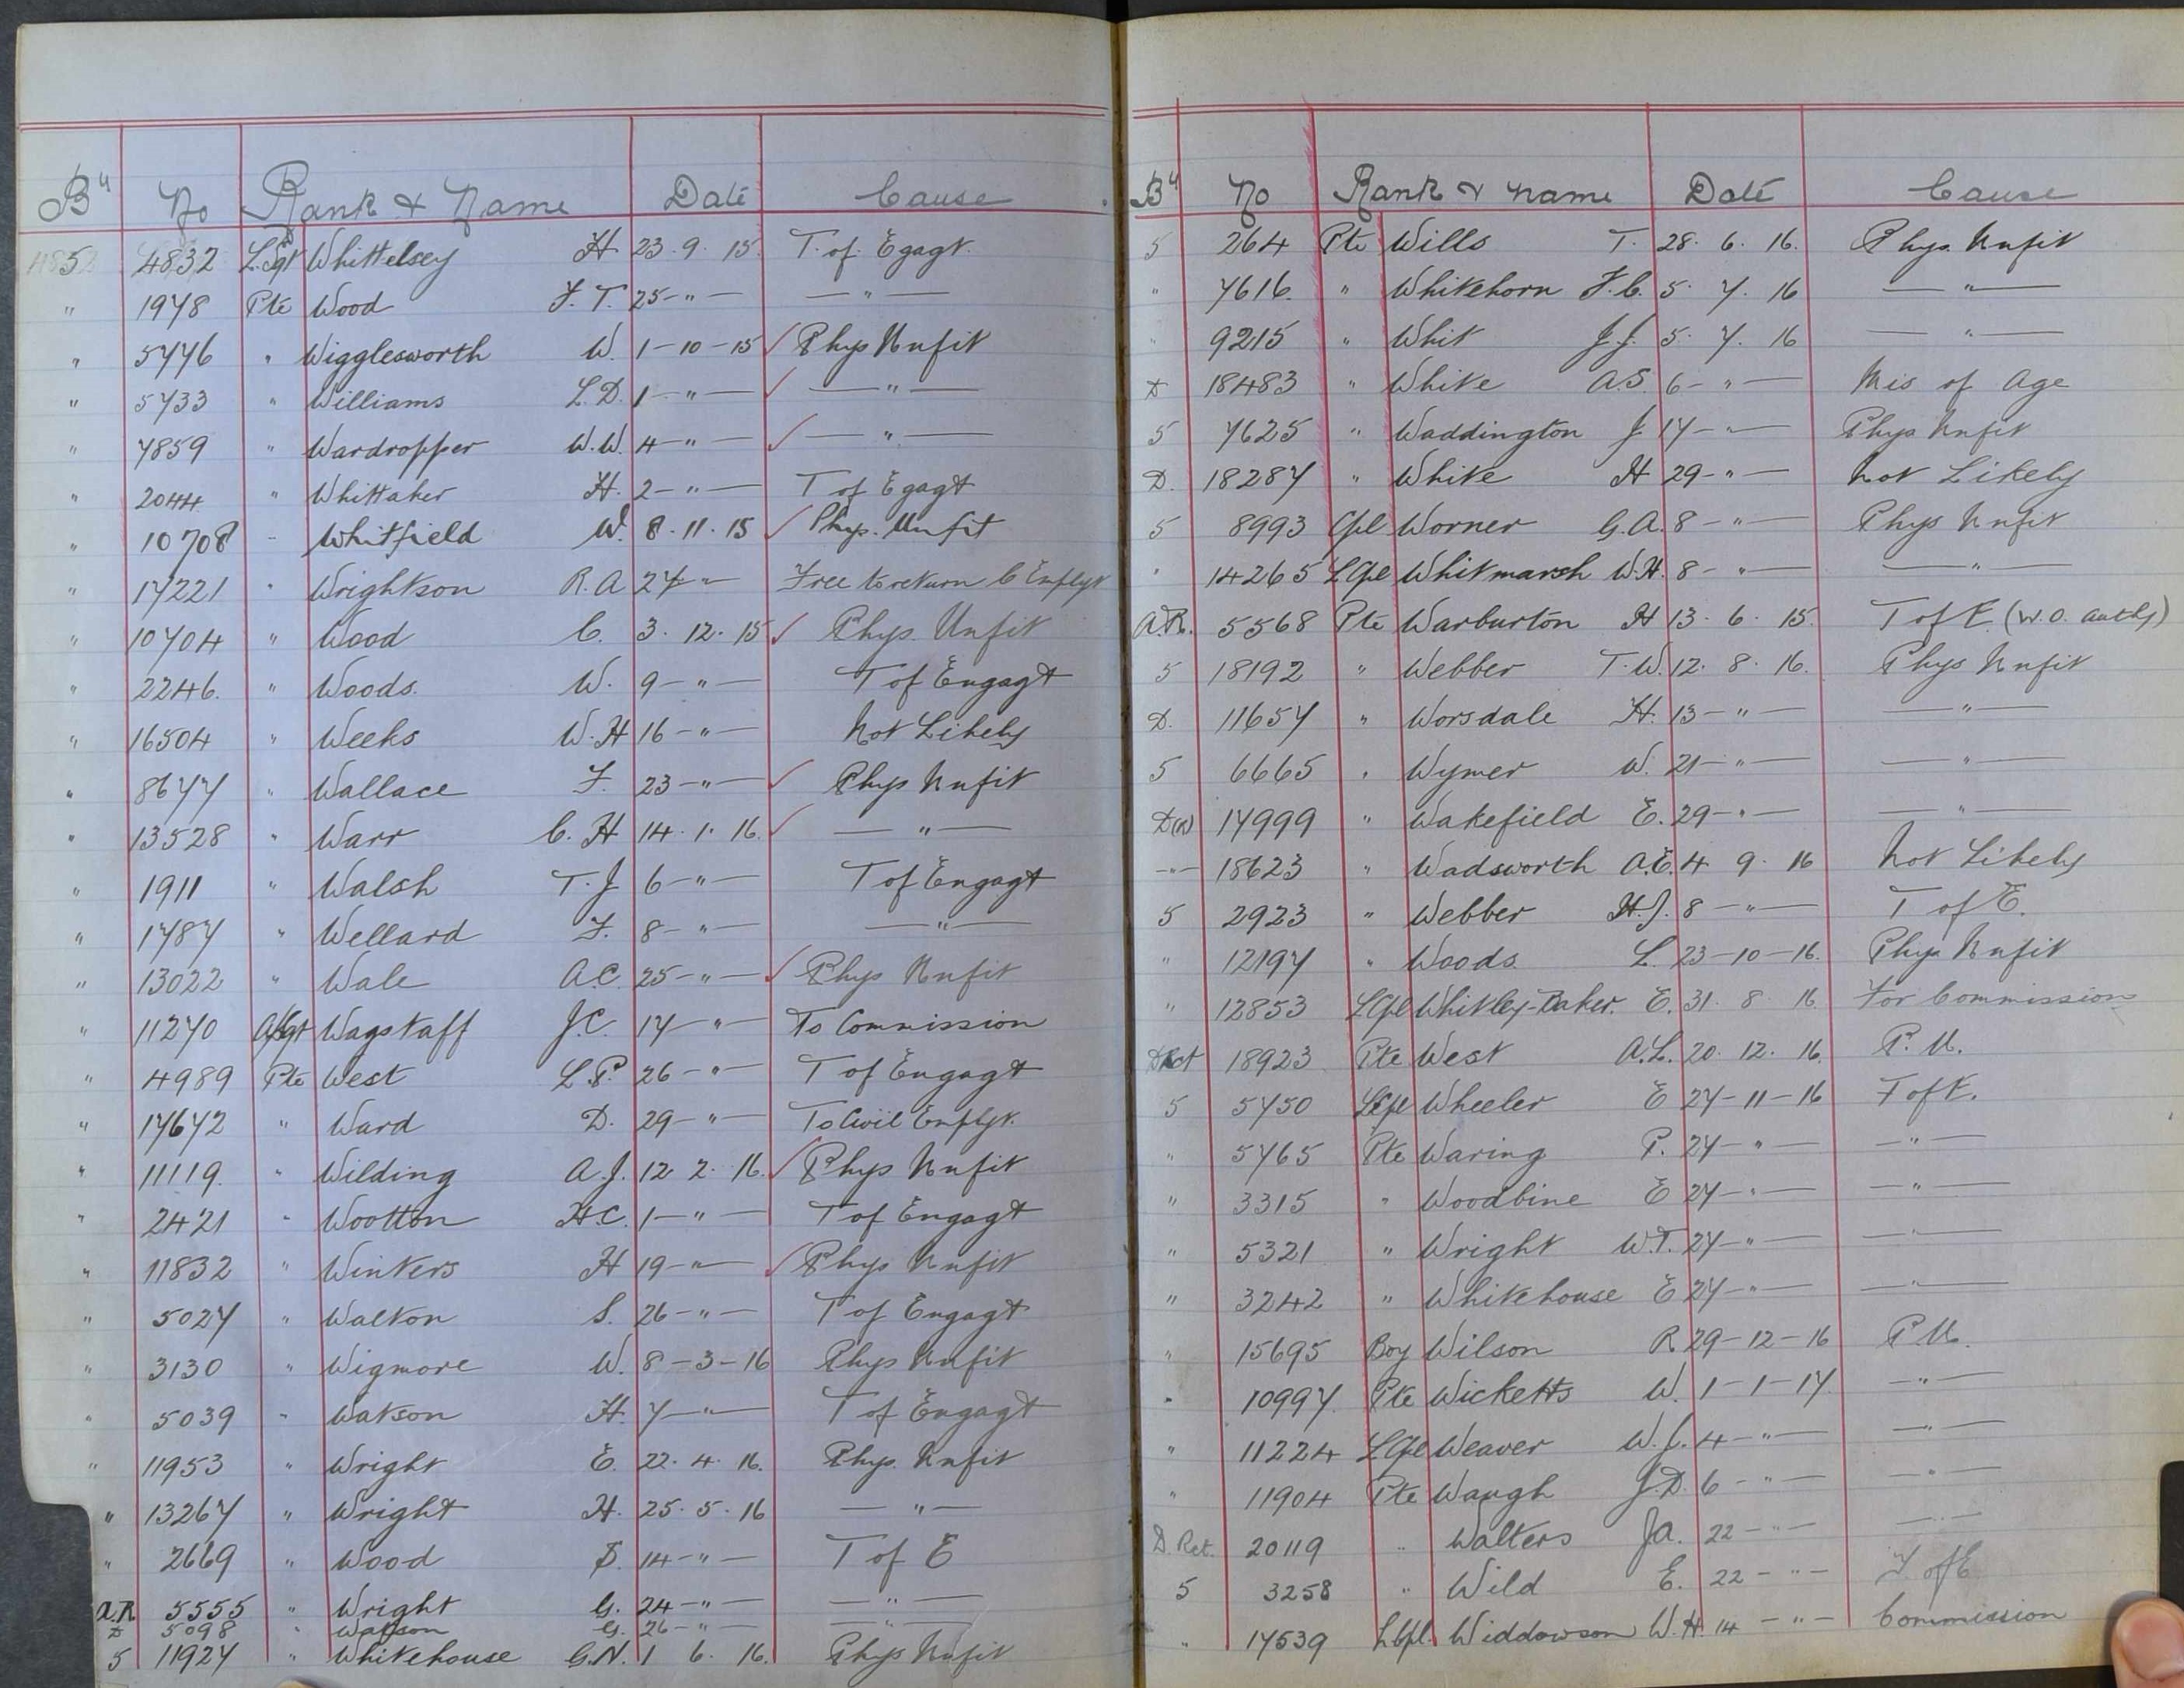 Bn No Rank & Name Date Cause
5 4832 L.Sgt Whittelsey H. 23. 9. 15. T. of. Egagt.
" 1978 Pte Wood F. T. 25 - " - - " -
" 5776 " Wigglesworth W. 1 - 10 - 15 ✓ Phys Unfit
" 5733 " Williams L.D. 1 - " - ✓ - " -
" 7859 " Wardropper W.W. 4 - " - ✓ - " -
" 2044 " Whittaker H. 2 - " - T of Egagt
" 10708 - Whitfield W. 8. 11. 15 ✓ Phys. Unfit
" 17221 " Wrightson R.A 27 - " - Free to return C Emplyt
" 10704 " Wood C. 3. 12. 15 ✓ Phys. Unfit
" 2246. " Woods. W. 9 - " - T of Engagt
" 16504 " Weeks W.H 16 - " - Not Likely
" 8677 " Wallace F. 23 - " - ✓ Phys Unfit
" 13528 " Warr C. H 14. 1. 16. ✓ - " -
" 1911 " Walsh T. J 6 - " - T of Engagt
" 1787 " Wellard F. 8 - " - - " -
" 13022 " Wale A.C. 25 - " - ✓ Phys Unfit
" 11270 A/Sgt Wagstaff J.C. 17 - " - To Commission
" 4989 Pte West L.P. 26 - " - T of Engagt
" 17672 " Ward D. 29 - " - To Civil Emplyt.
" 11119. " Wilding A.J. 12 2. 16. ✓ Phys Unfit
" 2421 " Wootton H.C. 1 - " - T of Engagt
" 11832 " Winters H 19 - " - ✓ Phys Unfit
" 5027 " Walton S. 26 - " - T of Engagt
" 3130 " Wigmore W. 8 - 3 - 16 Phys Unfit
" 5039 " Watson H. 7 - " - T of Engagt
" 11953 " Wright E. 22. 4. 16. Phys. Unfit
" 13267 " Wright H. 25. 5. 16 - " -
" 2669 " Wood 14 - " - T of E
A.R. 5555 " Wright G. 24 - " - - " -
D 5098 " Watson G. 26 - " - - " -
5 11927 " Whitehouse G.N. 1 6. 16. Phys Unfit
Bn No Rank & Name Date Cause
5 264 Pte Wills T. 28. 6. 16. Phys. Unfit
" 7616. " Whitehorn F.C. 5. 7. 16 - " -
" 9215 " Whit J.J. 5. 7. 16 - " -
D 18483 " White A.S. 6 - " - Mis of Age
5 7625 " Waddington J 17 - " - Phys Unfit
D. 18287 " White H 29 - " - Not Likely
5 8993 Cpl Worner G.A. 8 - " - Phys Unfit
" 14265 L.Cpl Whitmarsh W.H. 8 - " - - " -
A.R. 5568 Pte Warburton H 13. 6. 15. T of E. (W.O. authy)
5 18192 " Webber T.W. 12. 8. 16. Phys Unfit
D. 11657 " Worsdale H. 13 - " - - " -
5 6665 " Wymer W. 21 - " - - " -
D(R) 17999 " Wakefield E. 29 - " - - " -
- " - 18623 " Wadsworth A.E. 4 9. 16 Not Likely
5 2923 " Webber H.J. 8 - " - T of E.
" 12197 " Woods. L. 23 - 10 - 16. Phys Unfit
" 12853 L.Cpl Whitley-Baker. E. 31. 8. 16 For Commission
18923 Pte West A.L. 20. 12. 16. P. U.
5 5750 L.Cpl Wheeler E 27 - 11 - 16 T of E.
" 5765 Pte Waring P. 27 - " - - " -
" 3315 " Woodbine E 27 - " - - " -
" 5321 " Wright W.T. 27 - " - - " -
" 3242 " Whitehouse E 27 - " - - " -
" 15695 Boy Wilson R 29 - 12 - 16 P.U.
" 10997. Pte Wicketts W. 1 - 1 - 17. - " -
" 11224 L.Cpl Weaver W.J. 4 - " - - " -
" 11904 Pte Waugh J.D. 6 - " - - " -
D. Ret. 20119 " Walters J.A. 22 - " - - " -
5 3258 " Wild E. 22 - " - T. of E
" 17539 L.Cpl. Widdowson W.H. 14 - " - Commission